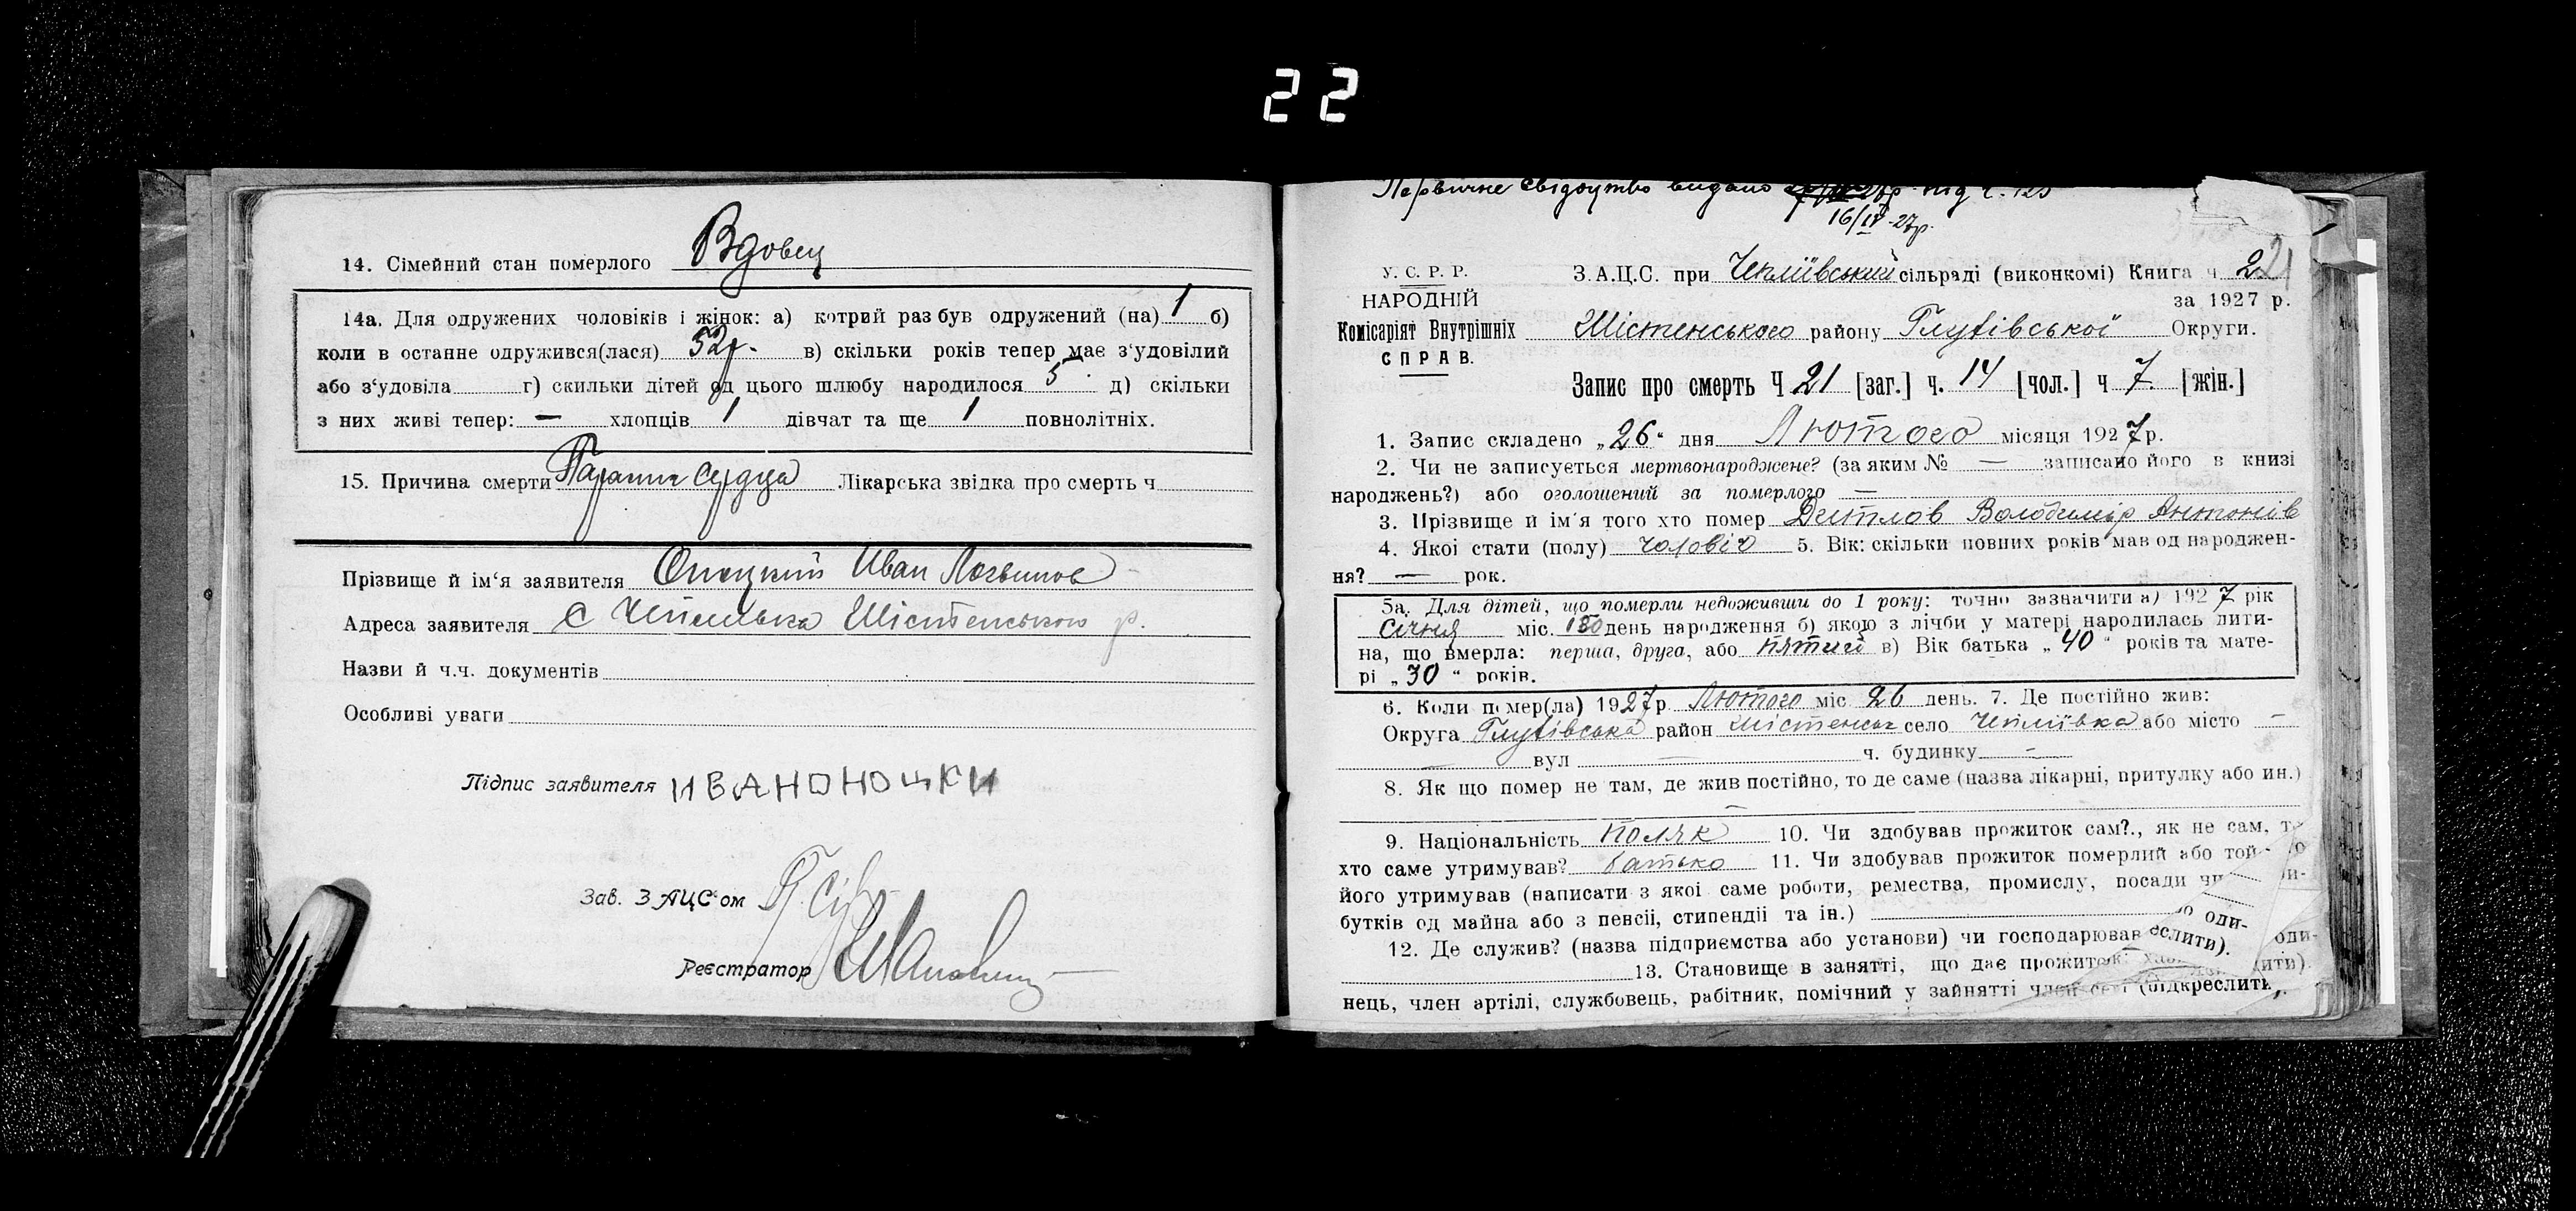 22
14. Сімейний стан померлого Вдовец
14а. Для одружених чоловіків і жінок: а) котрий раз був одружений (на) 1 б)
коли в останне одружився(лася) 52р. в) скільки років тепер має з'удовілий
або з'удовіла г) скильки дітей од цього шлюбу народилося 5 д) скільки
з них живі тепер: — хлопців 1 дівчат та ще 1 повнолітніх.
15. Причина смерти сердца Лікарська звідка про смерть ч
Прізвище й ім'я заявителя Иван
Адреса заявителя С Шістенського р.
Назви й ч.ч. документів
Особливі уваги
Підпис заявителя ИВАНОНОЦКИ
Зав. ЗАЦС'ом
Реєстратор
Первичне свідоцтво видано під ч. 125
16/IV-27р.
У. С. Р. Р.
НАРОДНІЙ
Комісаріят Внутрішніх
СПРАВ.
З.А.Ц.С. при Чепліївський сільраді (виконкомі) Книга ч 2
за 1927 р.
Шістенського району Глухівської Округи.
Запис про смерть Ч 21 [заг.] ч. 14 [чол.] ч 7 [жін.]
1. Запис складено „26" дня Лютого місяця 1927р.
2. Чи не записується мертвонароджене? (за яким № — записано його в книзі
народжень?) або оголошений за померлого —
3. Прізвище й ім'я того хто помер Володимір Антонів
4. Якоі стати (полу) чоловіч 5. Вік: скільки повних років мав од народжен-
ня? — рок.
5а. Для дітей, що померли недоживши до 1 року: точно зазначити а) 1927 рік
Січня міс. день народження б) якою з лічби у матері народилась дити-
на, що вмерла: перша, друга, або пятий в) Вік батька „40" років та мате-
рі „30" років.
6. Коли помер(ла) 1927р Лютого міс 26 день. 7. Де постійно жив:
Округа Глухівська район Шістенськ село Чепліївка або місто —
— вул — ч. будинку —
8. Як що помер не там, де жив постійно, то де саме (назва лікарні, притулку або ин.)
—
9. Національність поляк 10. Чи здобував прожиток сам?., як не сам, т
хто саме утримував? батько 11. Чи здобував прожиток померлий або той
його утримував (написати з якоі саме роботи, ремества, промислу, посади чи
бутків од майна або з пенсіі, стипендіі та ін.)
12. Де служив? (назва підприємства або установи) чи господарював
13. Становище в занятті, що дає прожиток:
нець, член артілі, службовець, рабітник, помічний у зайнятті член (підкреслити).